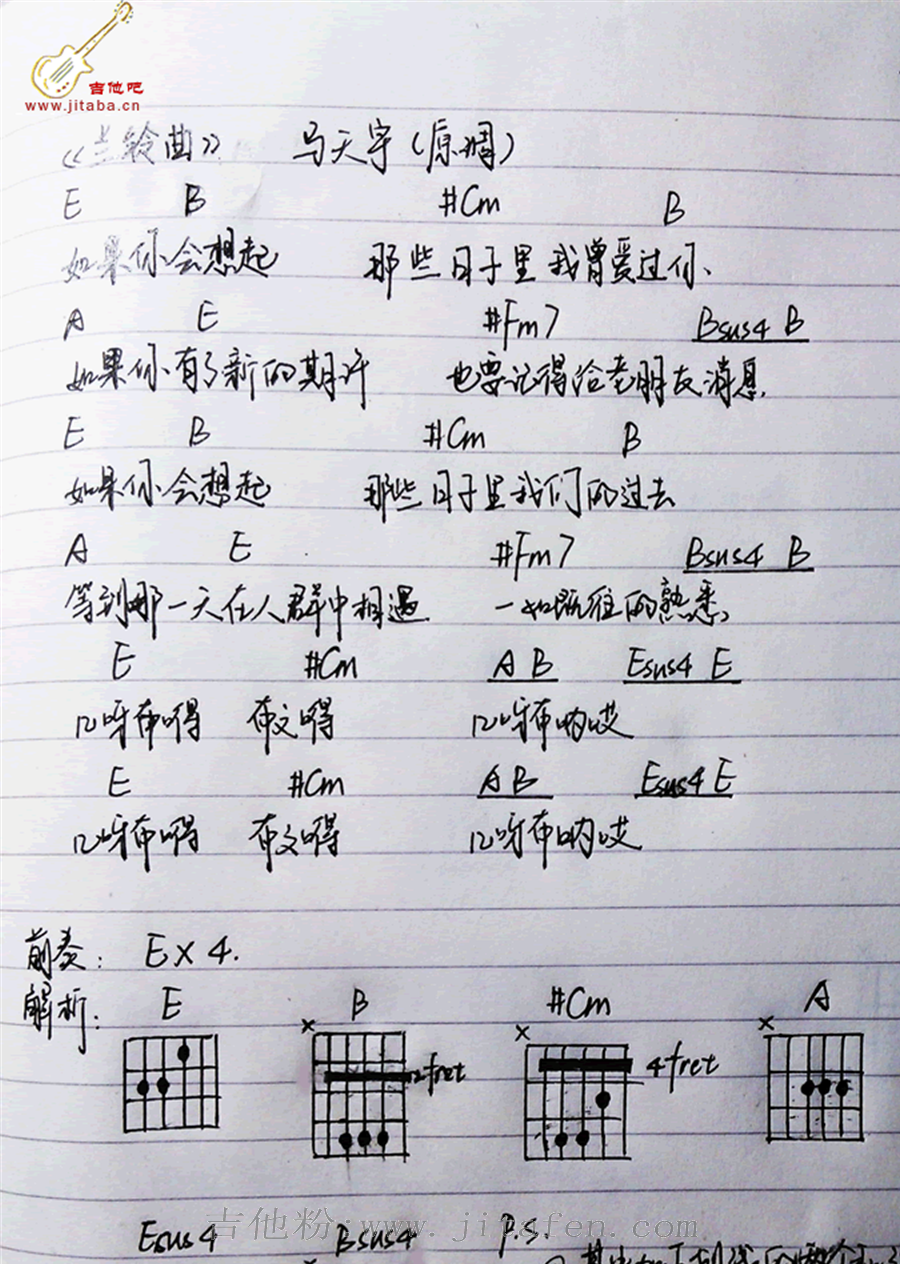 吉他吧
www.jitaba.cn
《兰铃曲》 马天宇(原调)
E B #Cm B
如果你会想起 那些日子里我曾爱过你
A E #Fm7 Bsus4 B
如果你有了新的期许 也要记得给老朋友消息
E B #Cm B
如果你会想起 那些日子里我们的过去
A E #Fm7 Bsus4 B
等到那一天在人群中相遇 一如既往的熟悉
E #Cm A B Esus4 E
几呀布嘚 布文嘚 几呀布呐哎
E #Cm A B Esus4 E
几呀布嘚 布文嘚 几呀布呐哎
前奏: E×4.
解析:
E B #Cm A
x x x
2fret 4fret
吉他粉:www.jitafen.com
Esus4 Bsus4 P.S.